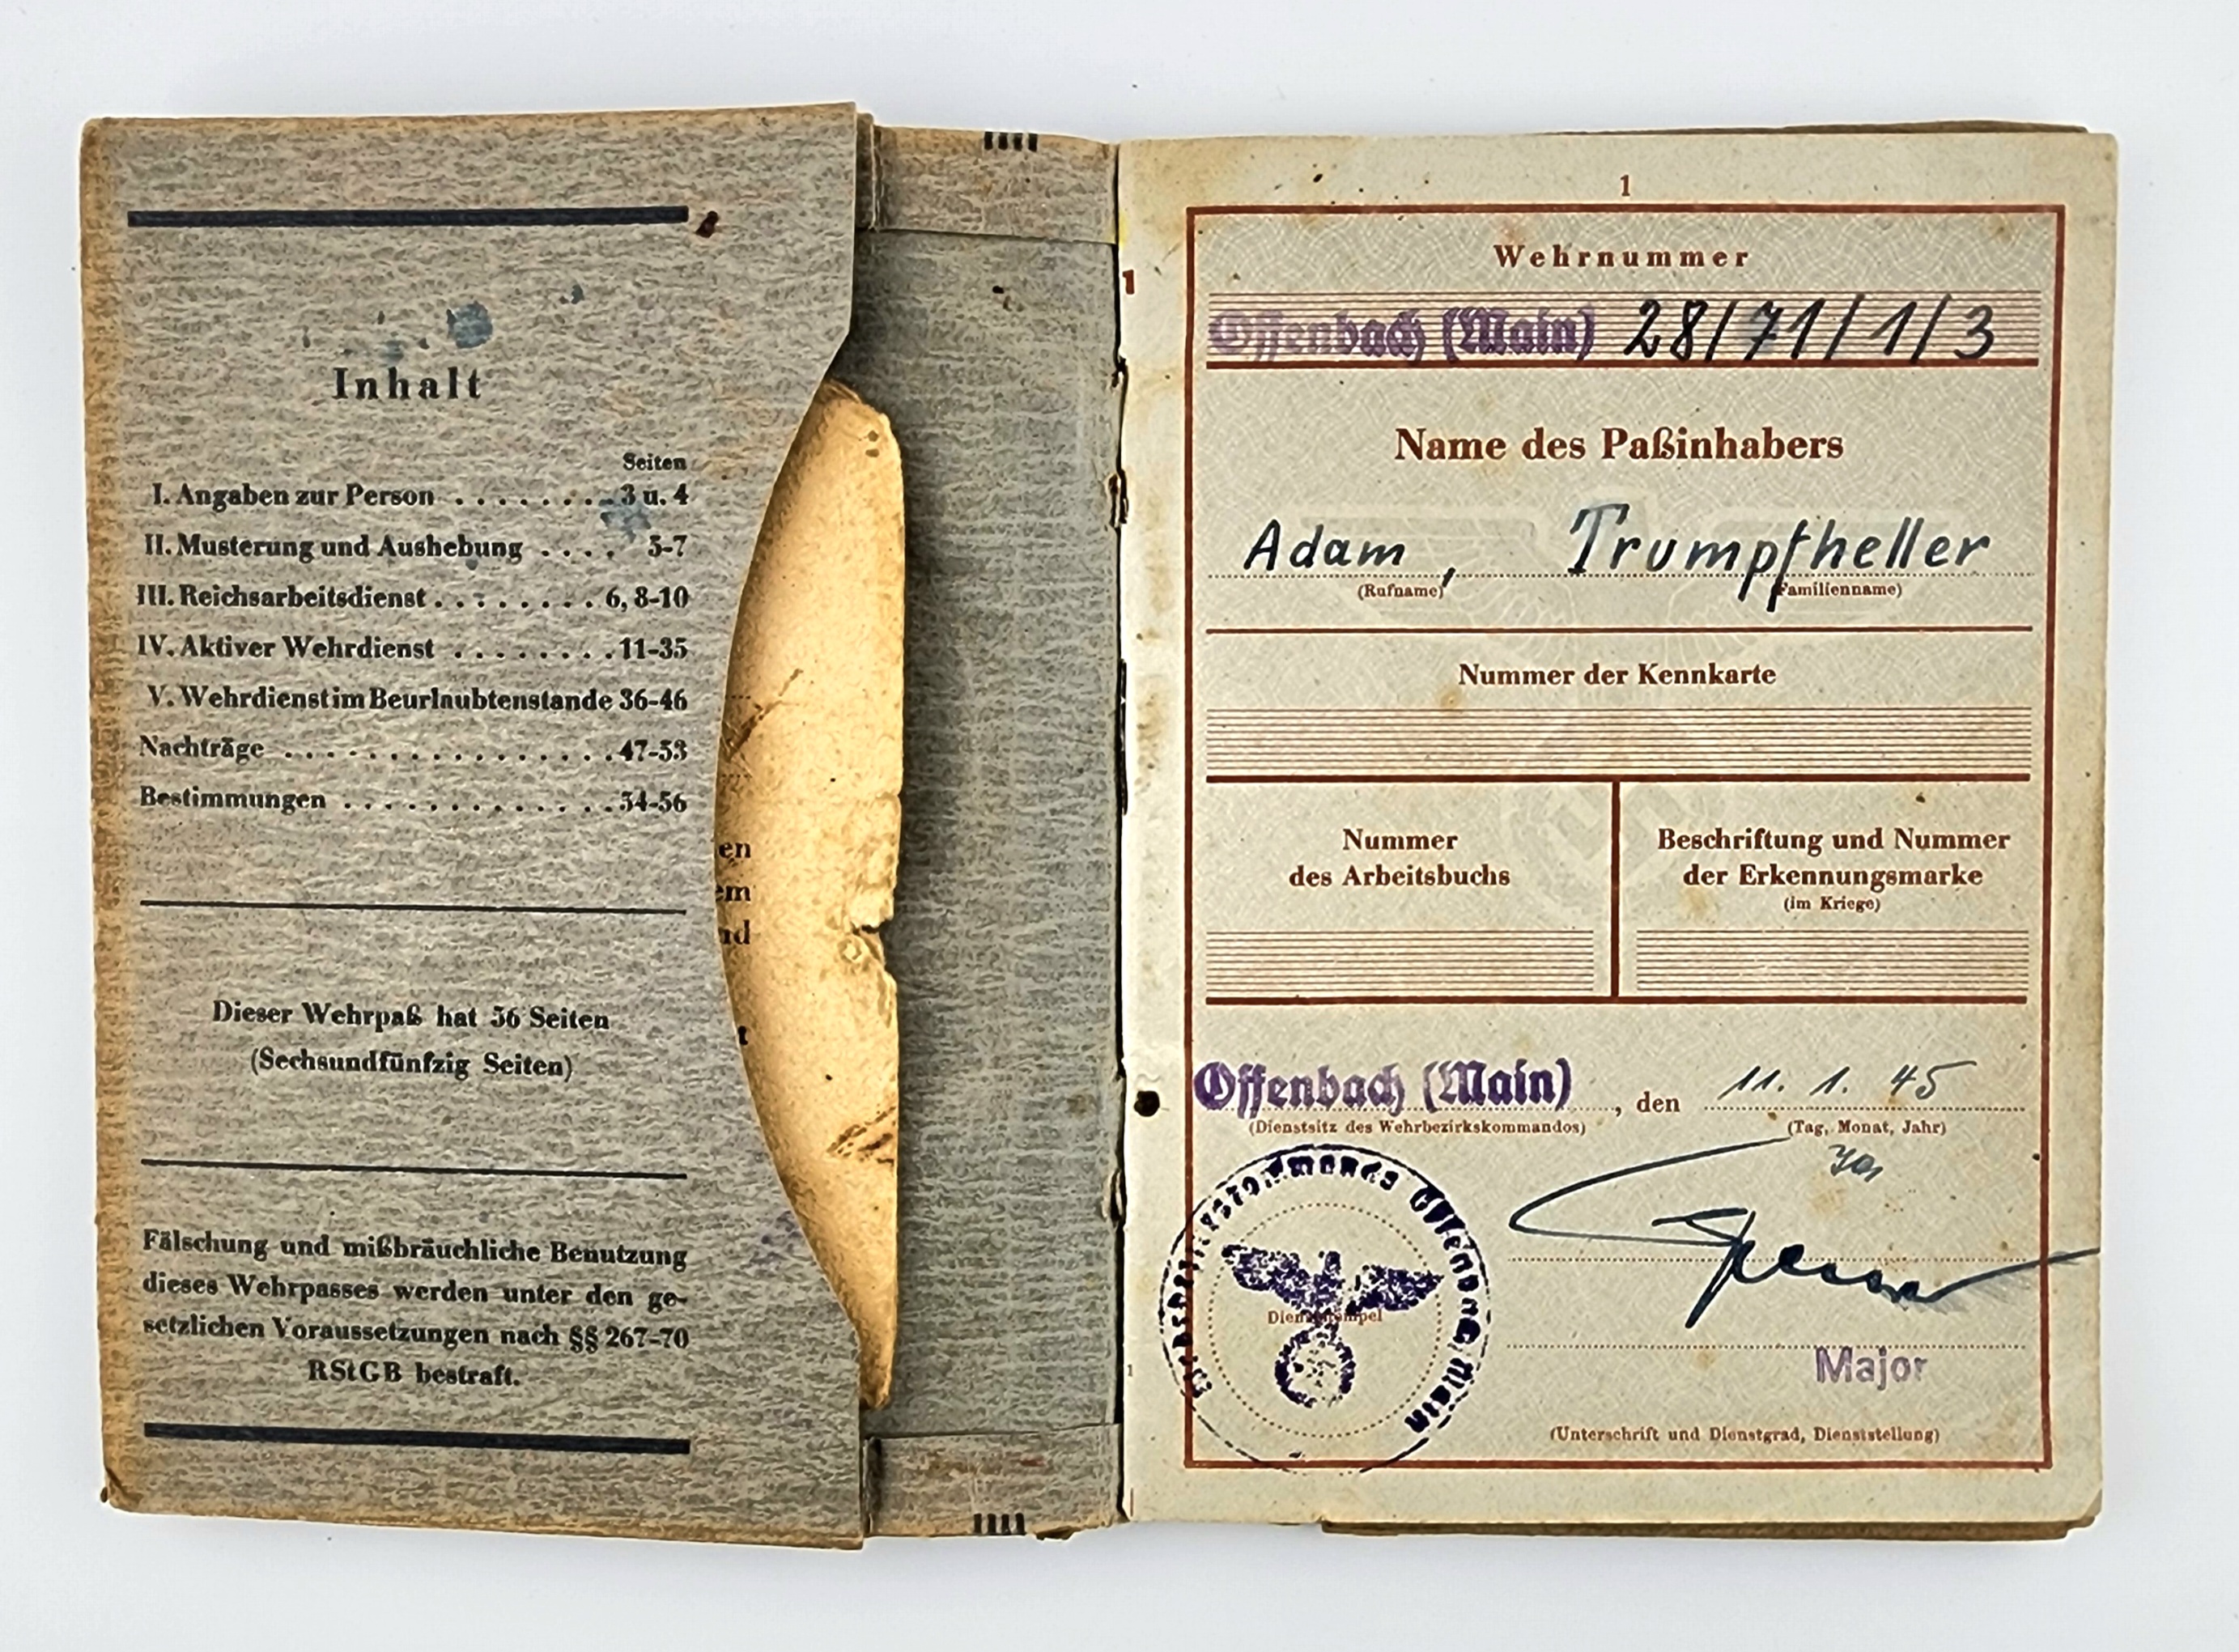 Inhalt
Seiten
I. Angaben zur Person . . . . . . . 3 u. 4
II. Musterung und Aushebung . . . . 5-7
III. Reichsarbeitsdienst . . . . . . . . 6, 8-10
IV. Aktiver Wehrdienst . . . . . . . . 11-35
V. Wehrdienst im Beurlaubtenstande 36-46
Nachträge . . . . . . . . . . . . . . . 47-53
Bestimmungen . . . . . . . . . . . . . 54-56
Dieser Wehrpaß hat 56 Seiten
(Sechsundfünfzig Seiten)
Fälschung und mißbräuchliche Benutzung
dieses Wehrpasses werden unter den ge-
setzlichen Voraussetzungen nach §§ 267-70
RStGB bestraft.
en
em
nd
t
1
1
Wehrnummer
Offenbach (Main) 28/71/1/3
Name des Paßinhabers
Adam, Trumpfheller
(Rufname) (Familienname)
Nummer der Kennkarte
Nummer
des Arbeitsbuchs
Beschriftung und Nummer
der Erkennungsmarke
(im Kriege)
Offenbach (Main), den 11. 1. 45
(Dienstsitz des Wehrbezirkskommandos) (Tag, Monat, Jahr)
Dienststempel
Major
(Unterschrift und Dienstgrad, Dienststellung)
1